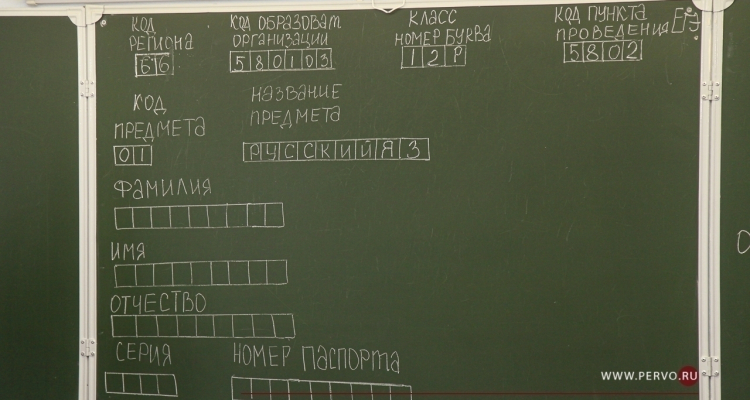 КОД РЕГИОНА
66
КОД ОБРАЗОВАТ ОРГАНИЗАЦИИ
580103
КЛАСС НОМЕР БУКВА
12Р
КОД ПУНКТА ПРОВЕДЕНИЯ ЕГЭ
5802
КОД ПРЕДМЕТА
01
НАЗВАНИЕ ПРЕДМЕТА
РУССКИЙЯЗ
ФАМИЛИЯ
ИМЯ
ОТЧЕСТВО
СЕРИЯ
НОМЕР ПАСПОРТА
WWW.PERVO.RU